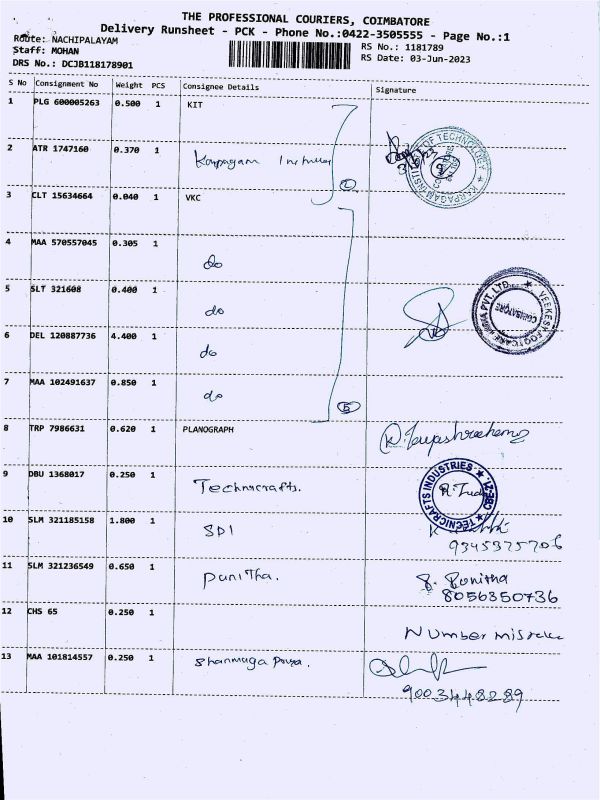 THE PROFESSIONAL COURIERS, COIMBATORE
Delivery Runsheet - PCK - Phone No.:0422-3505555 - Page No.:1
Route: NACHIPALAYAM
Staff: MOHAN
DRS No.: DCJB118178901
RS No.: 1181789
RS Date: 03-Jun-2023
S No Consignment No Weight PCS Consignee Details Signature
1 PLG 600005263 0.500 1 KIT
2 ATR 1747160 0.370 1 Karpagam
3/6/23
KARPAGAM INSTITUTE OF TECHNOLOGY
2
3 CLT 15634664 0.040 1 VKC
4 MAA 570557045 0.305 1 do
5 SLT 321608 0.400 1 do
VEEKESY FOOTCARE INDIA PVT. LTD.
COIMBATORE
6 DEL 120887736 4.400 1 do
7 MAA 102491637 0.850 1 do
5
8 TRP 7986631 0.620 1 PLANOGRAPH
9 DBU 1368017 0.250 1 Technicrafts.
TECNICRAFTS INDUSTRIES CBE-21
10 SLM 321185158 1.800 1 SDI
9345375706
11 SLM 321236549 0.650 1 Punitha. S. Punitha
8056350736
12 CHS 65 0.250 1 Number mistake
13 MAA 101814557 0.250 1 Shanmuga Priya.
9003448289